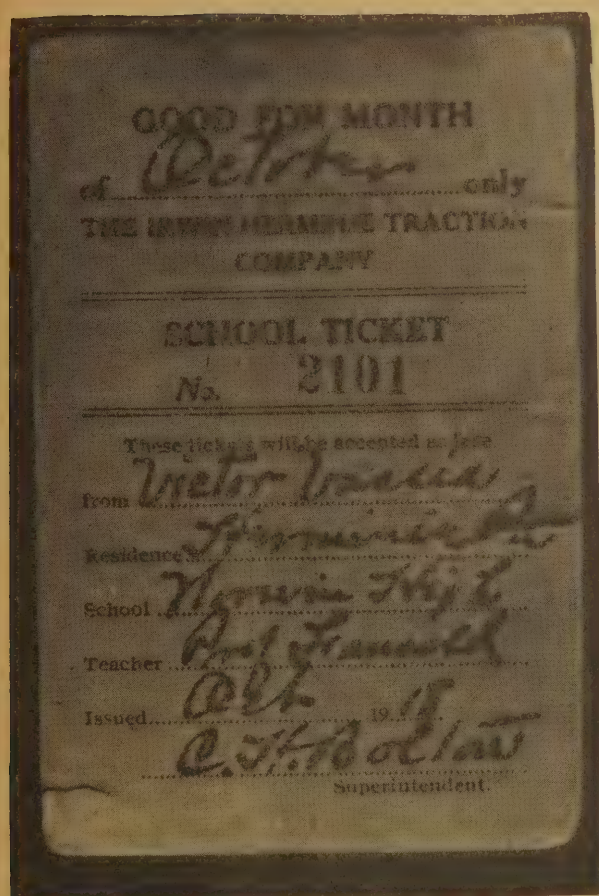 GOOD FOR MONTH
of October only
THE IRWIN-HERMINIE TRACTION
COMPANY
SCHOOL TICKET
No. 2101
These tickets will be accepted as fare
from Victor
Residence Herminie Pa
School Norwin High
Teacher Prof
Issued Oct. 1918
C. H.
Superintendent.